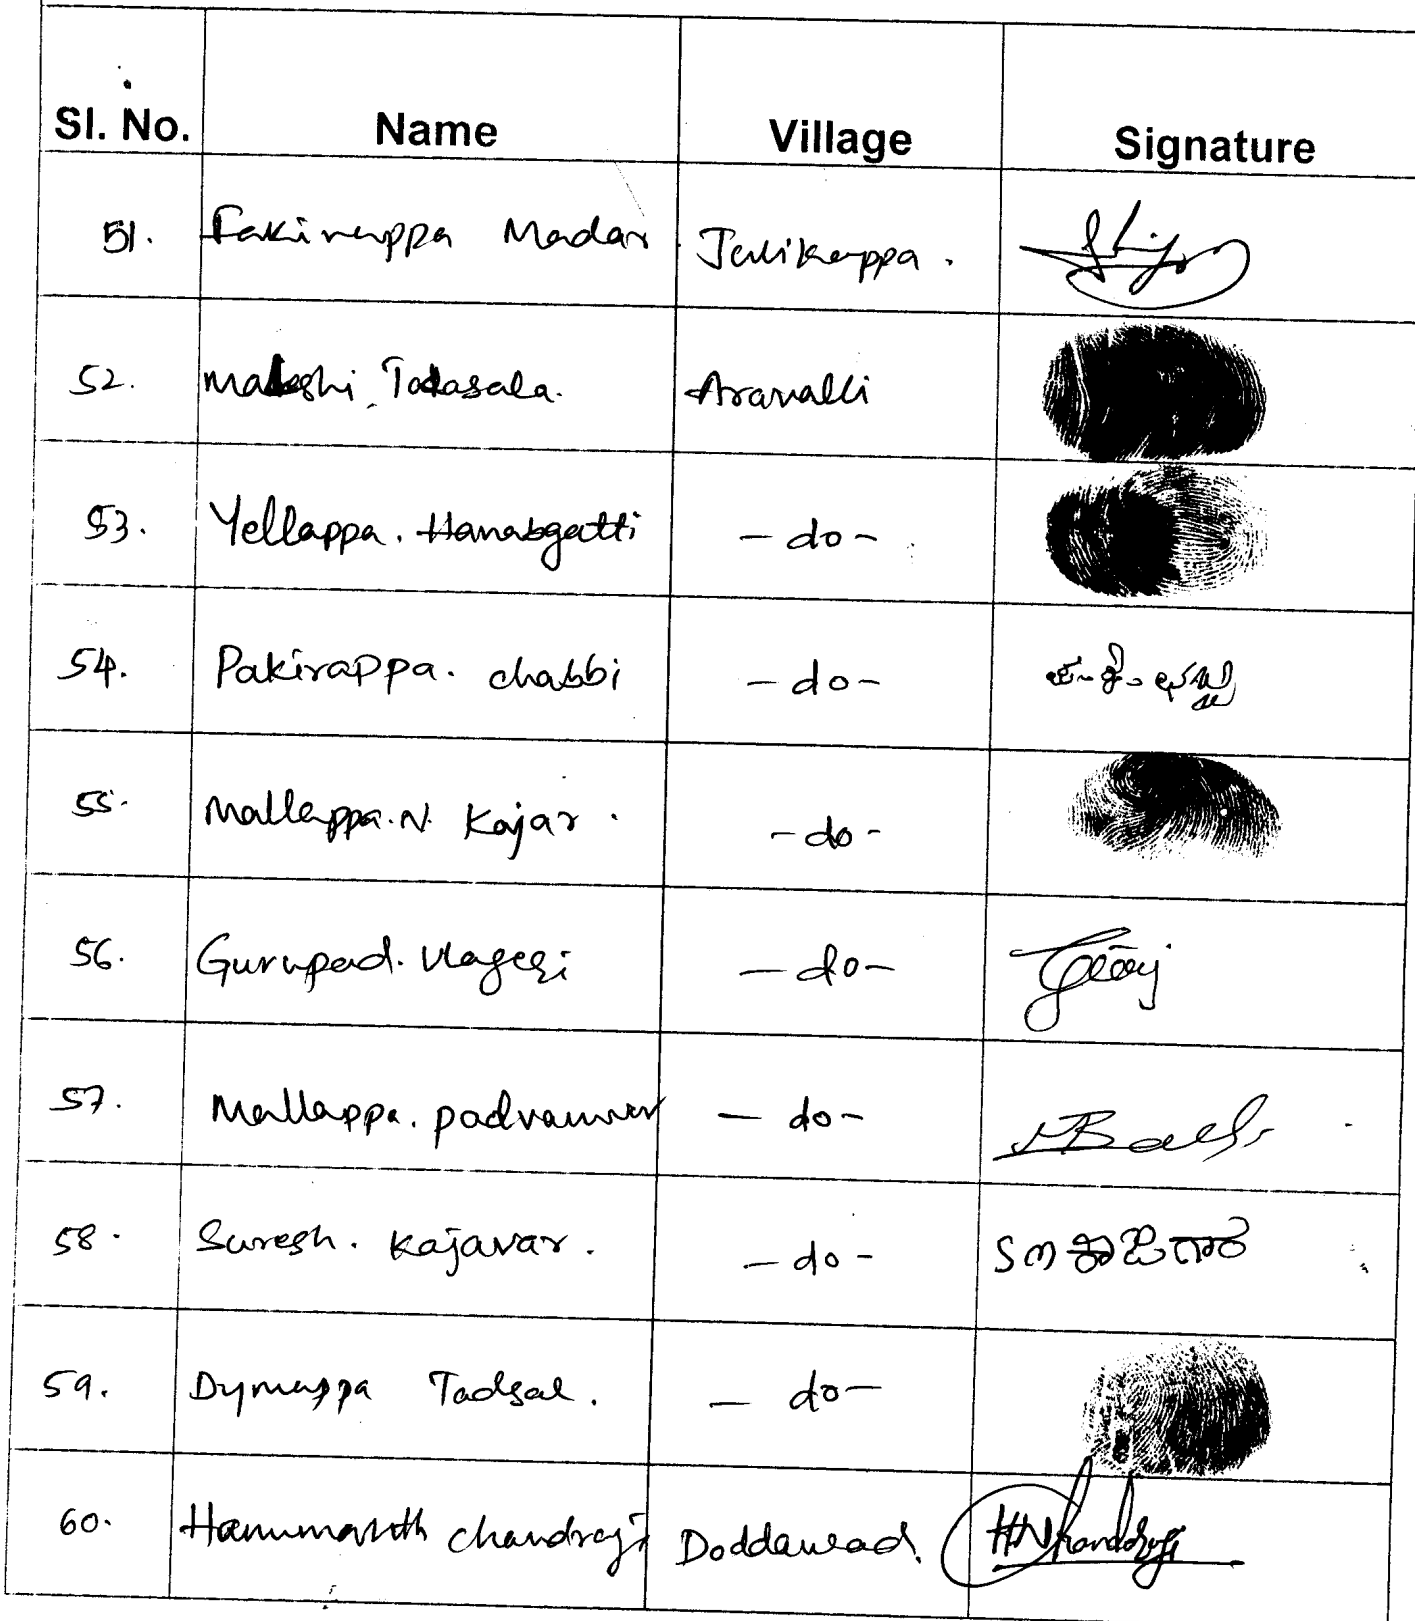 Sl. No. Name Village Signature
51. Fakirappa Madar Jalikoppa.
52. Makeshi Tadasala. Aravalli
53. Yellappa. Hanabgatti -do-
54. Pakirappa. chabbi -do-
55. Mallappa. N. Kajar. -do-
56. Gurupad. -do-
57. Mallappa. -do-
58. Suresh. Kajavar. -do- S m
59. Dymappa Tadsal. -do-
60. Hanumanth chandragi Doddawad. HNChandragi